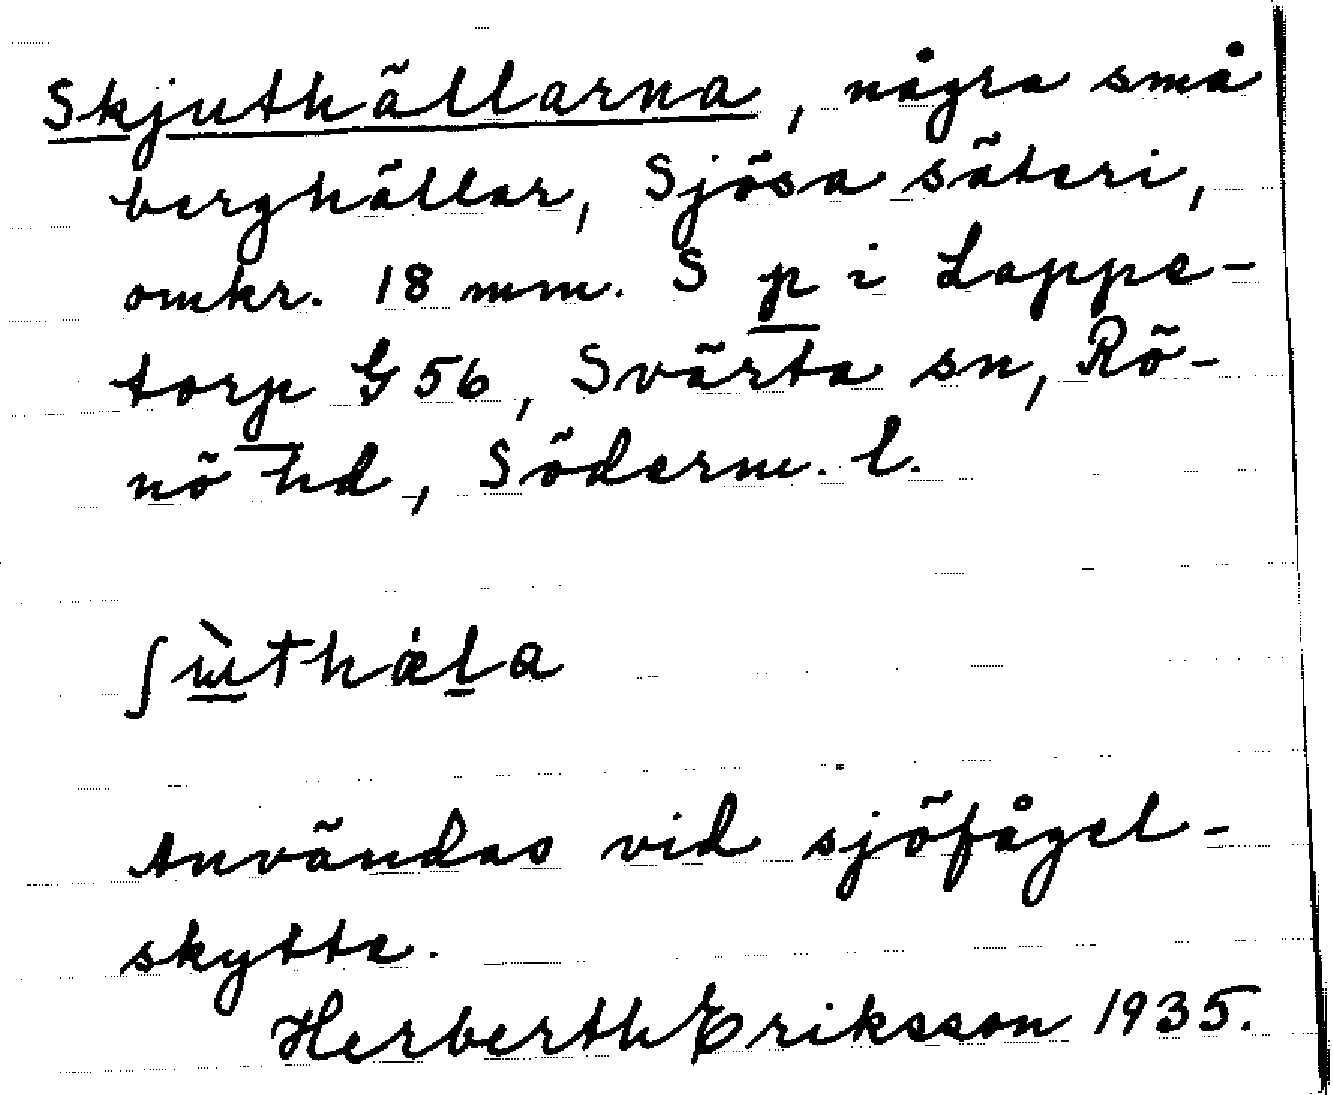 Skjuthällarna, några små
berghällar, Sjösa säteri,
omkr. 18 mm. S p i Lappe-
torp G 56, Svärta sn, Rö-
nö hd, Söderm. l.
ʃɯ̀thæ̍l̠a
Användas vid sjöfågel-
skytte.
Herberth Eriksson 1935.